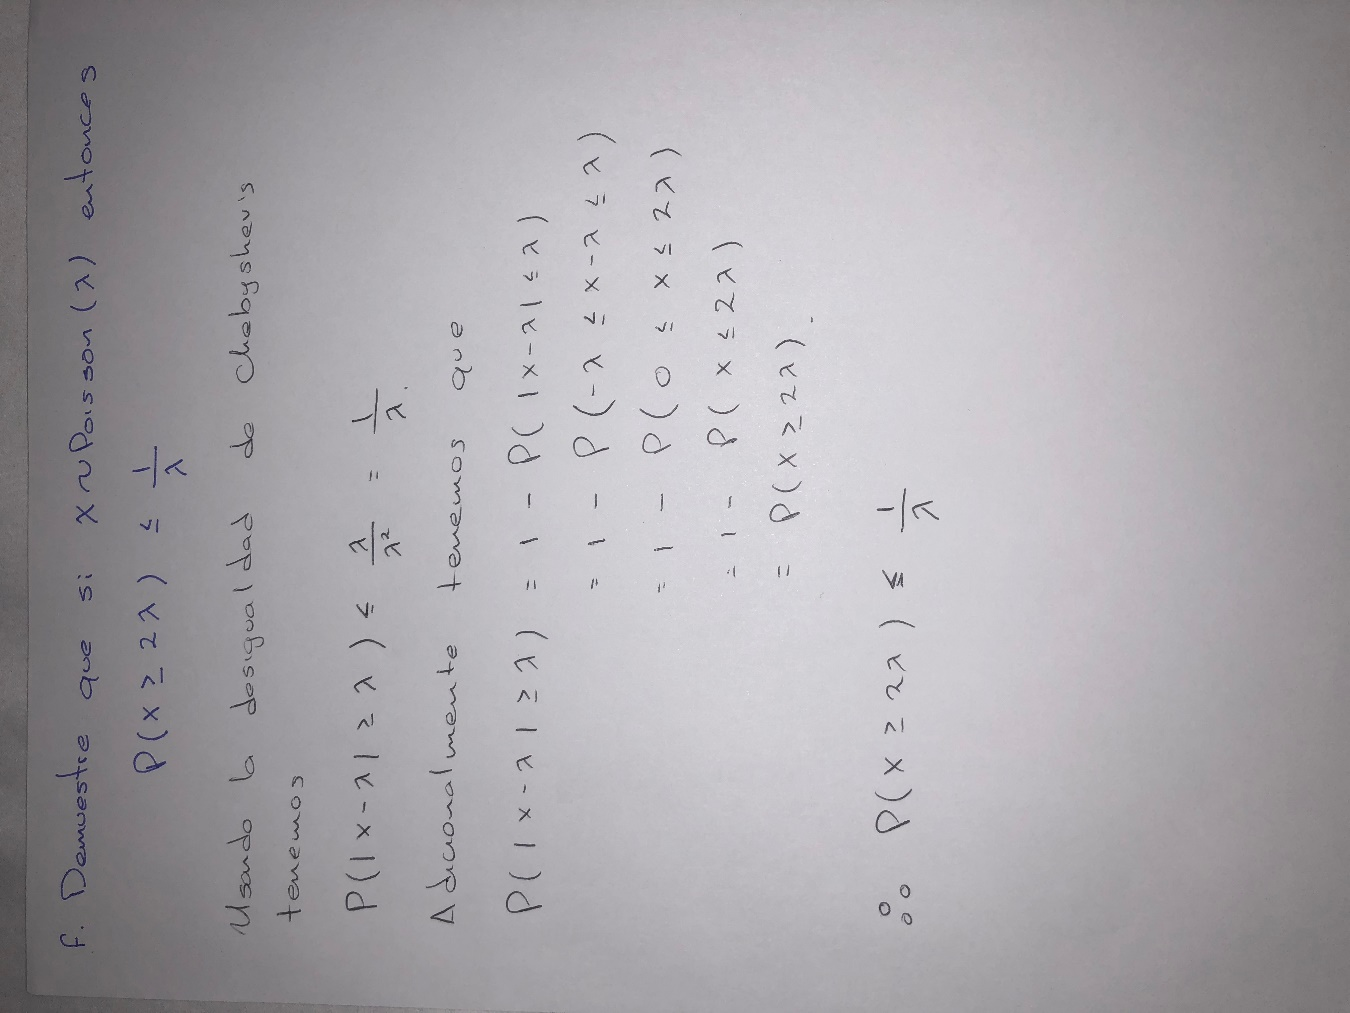 f. Demuestre que si X ~ Poisson (λ) entonces
P(X ≥ 2λ) ≤ 1/λ
Usando la desigualdad de Chebyshev's
tenemos
P(|X-λ| ≥ λ) ≤ λ/λ² = 1/λ.
Adicionalmente tenemos que
P(|X-λ| ≥ λ) = 1 - P(|X-λ| ≤ λ)
= 1 - P(-λ ≤ X-λ ≤ λ)
= 1 - P(0 ≤ X ≤ 2λ)
= 1 - P(X ≤ 2λ)
= P(X ≥ 2λ).
∴ P(X ≥ 2λ) ≤ 1/λ